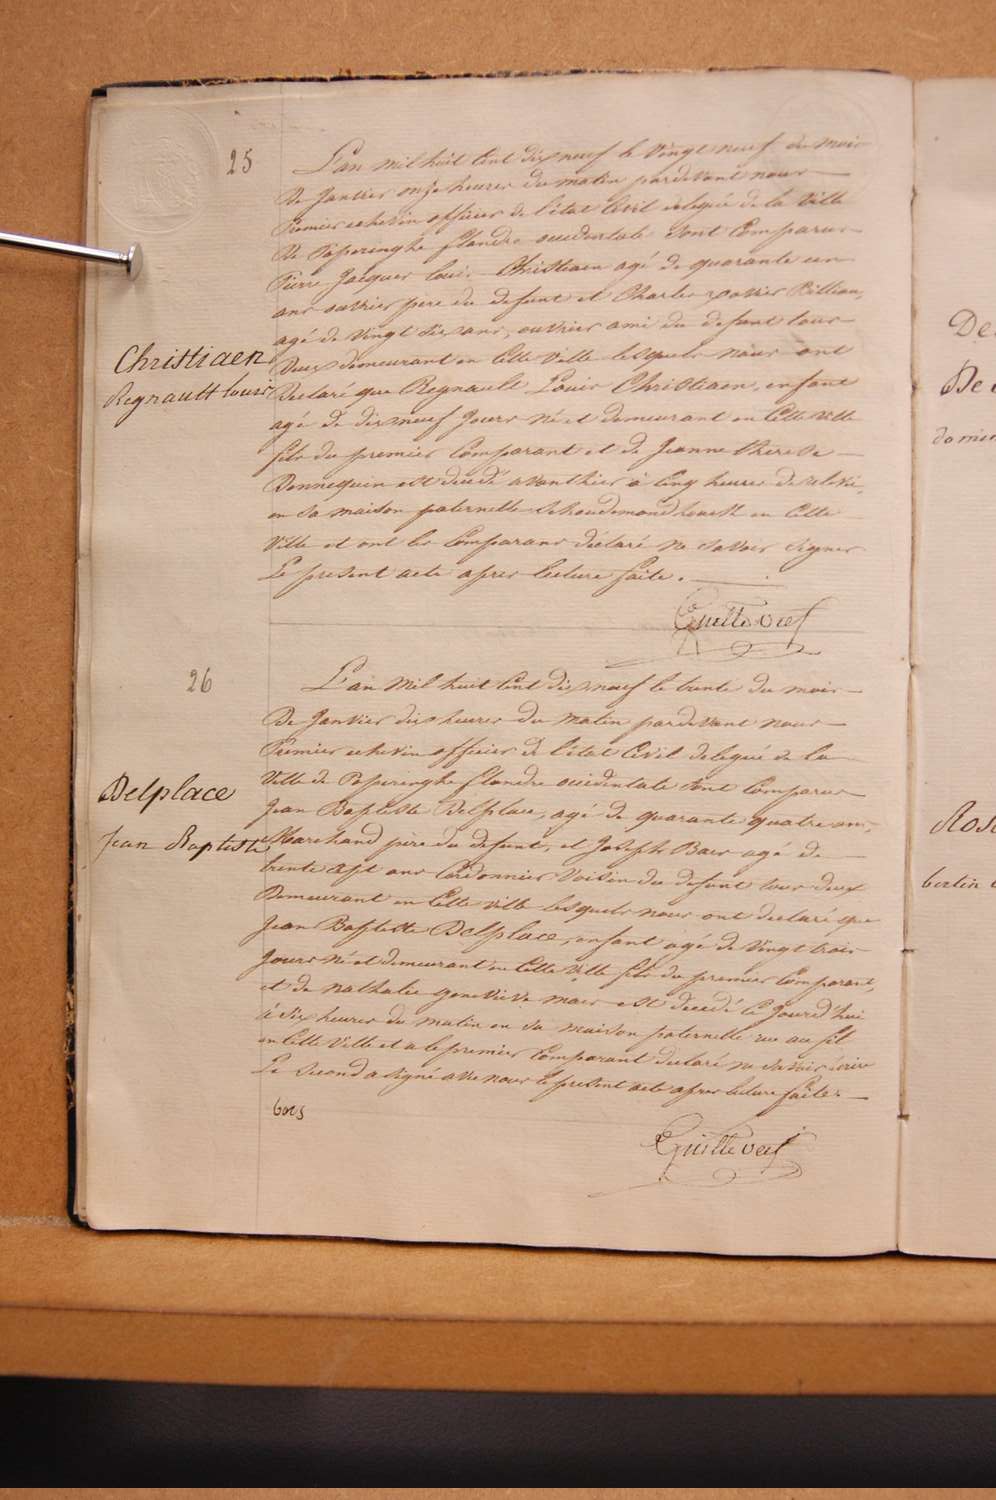 25
L'an mil huit Cent dix neuf le Vingt neuf du mois
De Janvier onze heures du matin pardevant nous
Premier echevin officier de l'état Civil delegué de la Ville
De Poperinghe flandre occidentale sont Comparus
Pierre Jacques Louis Christiaen agé de quarante un
ans ouvrier pere du defunt et Charles xavier Billiau,
agé de Vingt six ans, ouvrier ami du defunt tous
Christiaen
Regnault Louis
Deux demeurant en Cette Ville lesquels nous ont
Declaré que Regnault Louis Christiaen, enfant
agé de dix neuf Jours né et demeurant en Cette Ville
fils du premier Comparant et de Jeanne therese
Dennequin est decedé avanthier à Cinq heures de relevée
en sa maison paternelle en Cette
Ville et ont les Comparans declaré ne savoir signer
Le present acte apres lecture faite.
26
L'an mil huit Cent dix neuf le trente du mois
De Janvier dix heures du matin pardevant nous
Premier echevin officier de l'état Civil delegué de la
Ville de Poperinghe flandre occidentale sont Comparus
Delplace
Jean Baptiste
Jean Baptiste Delplace, agé de quarante quatre ans,
Marchand père du defunt, et Joseph Baes agé de
trente sept ans Cordonnier Voisin du defunt tous deux
Demeurant en Cette Ville lesquels nous ont declaré que
Jean Baptiste Delplace, enfant agé de Vingt trois
Jours né et demeurant en Cette Ville fils du premier Comparant,
et de nathalie genevieve maes est decedé Ce Jourd'hui
à six heures du matin en sa maison paternelle rue au fil
en Cette Ville et a le premier Comparant declaré ne savoir écrire
Le second a signé avec nous le present acte apres lecture faite.
De
De
Rosa